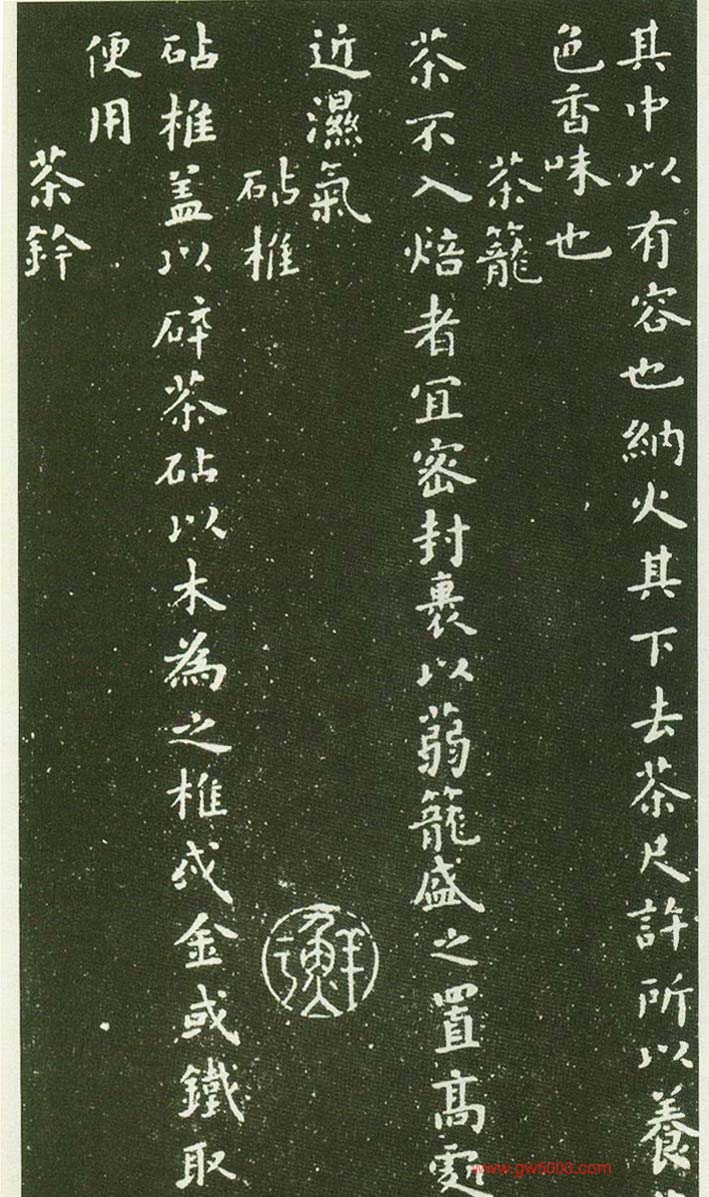 其中以有容也納火其下去茶尺許所以養
色香味也
茶籠
茶不入焙者宜密封裹以蒻籠盛之置高處
近濕氣
砧椎
砧椎盖以碎茶砧以木為之椎或金或鐵取
便用
茶鈐